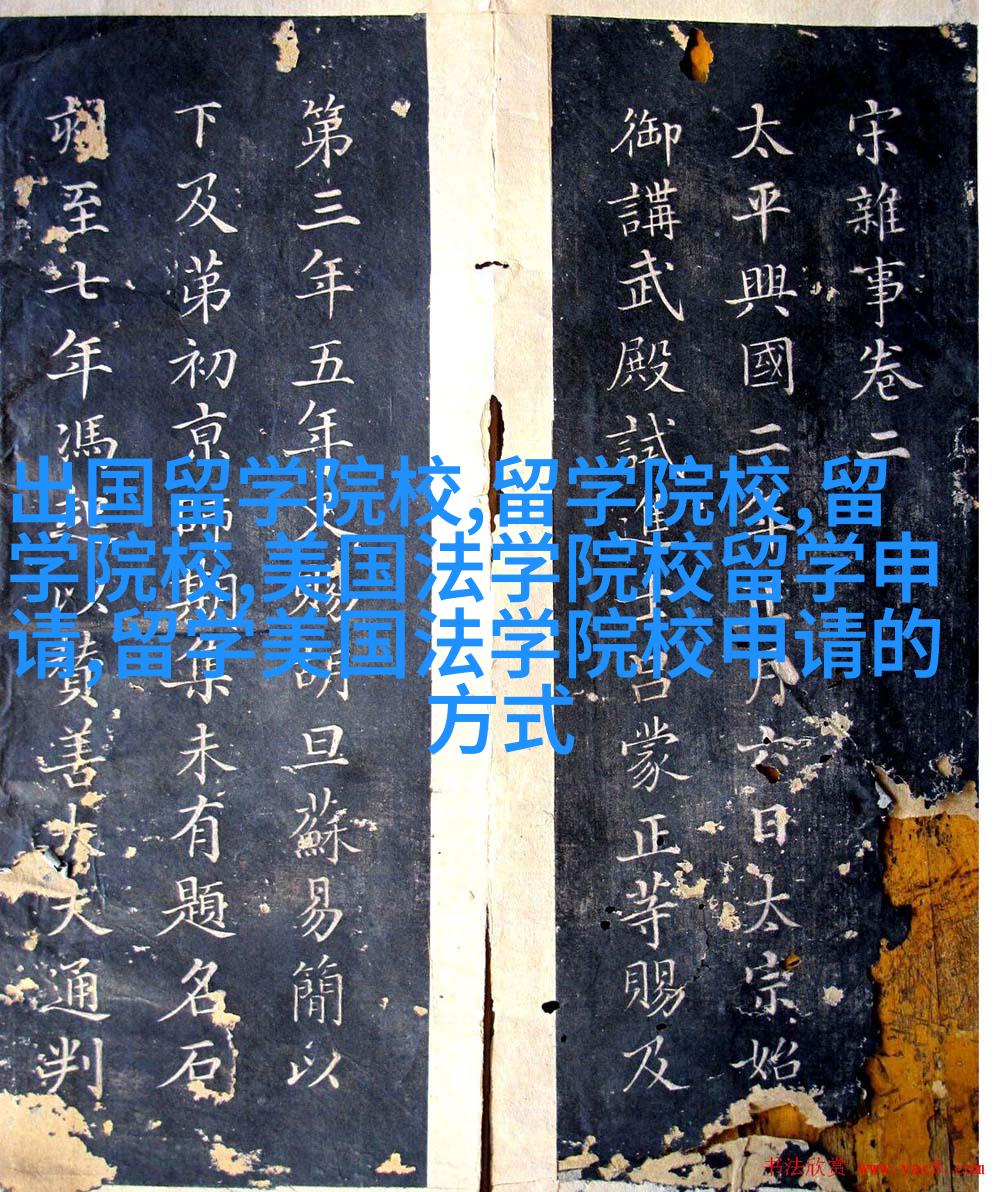 宋雜事卷二
太平興國二年正月六日太宗始
御講武殿試進士吕蒙正等賜及
第三年五年賜明旦蘇易簡以
下及第初京師期集未有題名石
至七年馮起以贊善大夫通判
出国留学院校,留学院校,留
学院校,美国法学院校留学申
请,留学美国法学院校申请的
方式
书法欣赏 www.yac8.com